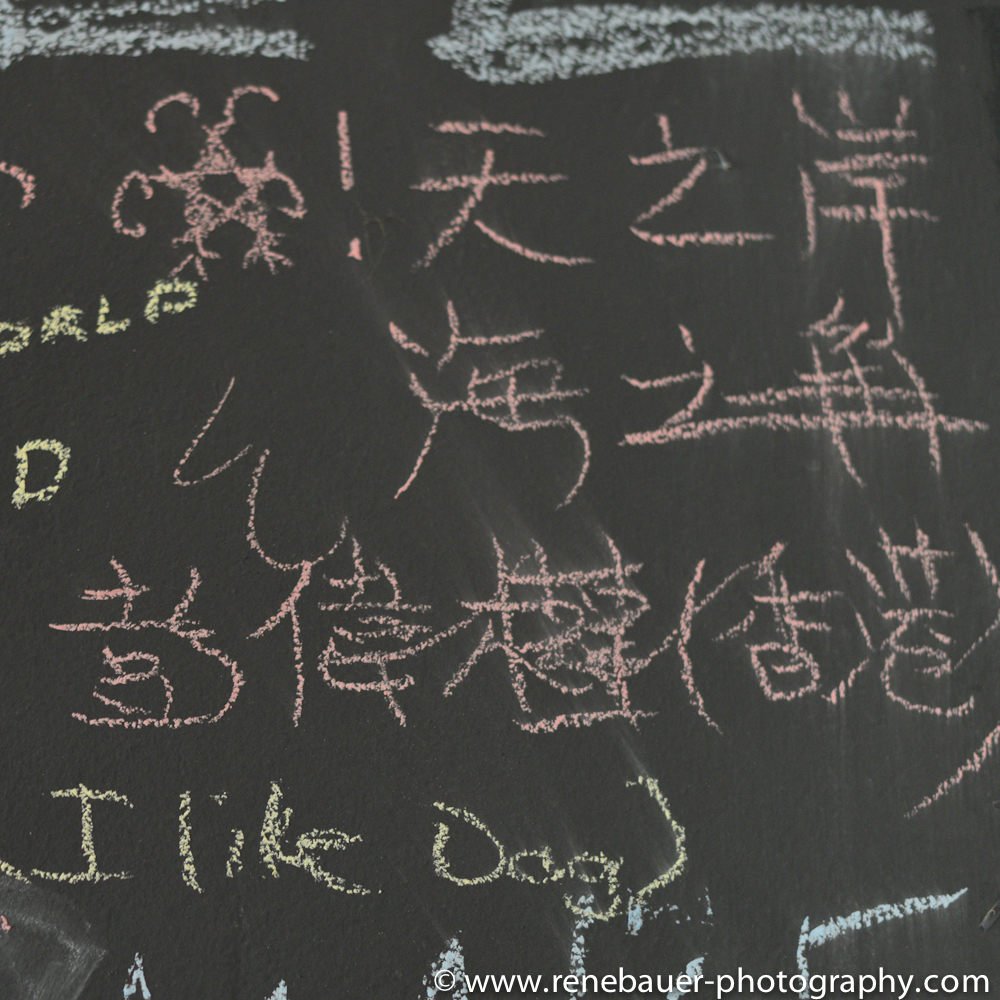 ! 天之岸
ORLD
海之
D
彭偉 (香港
I like Dog)
© www.renebauer-photography.com